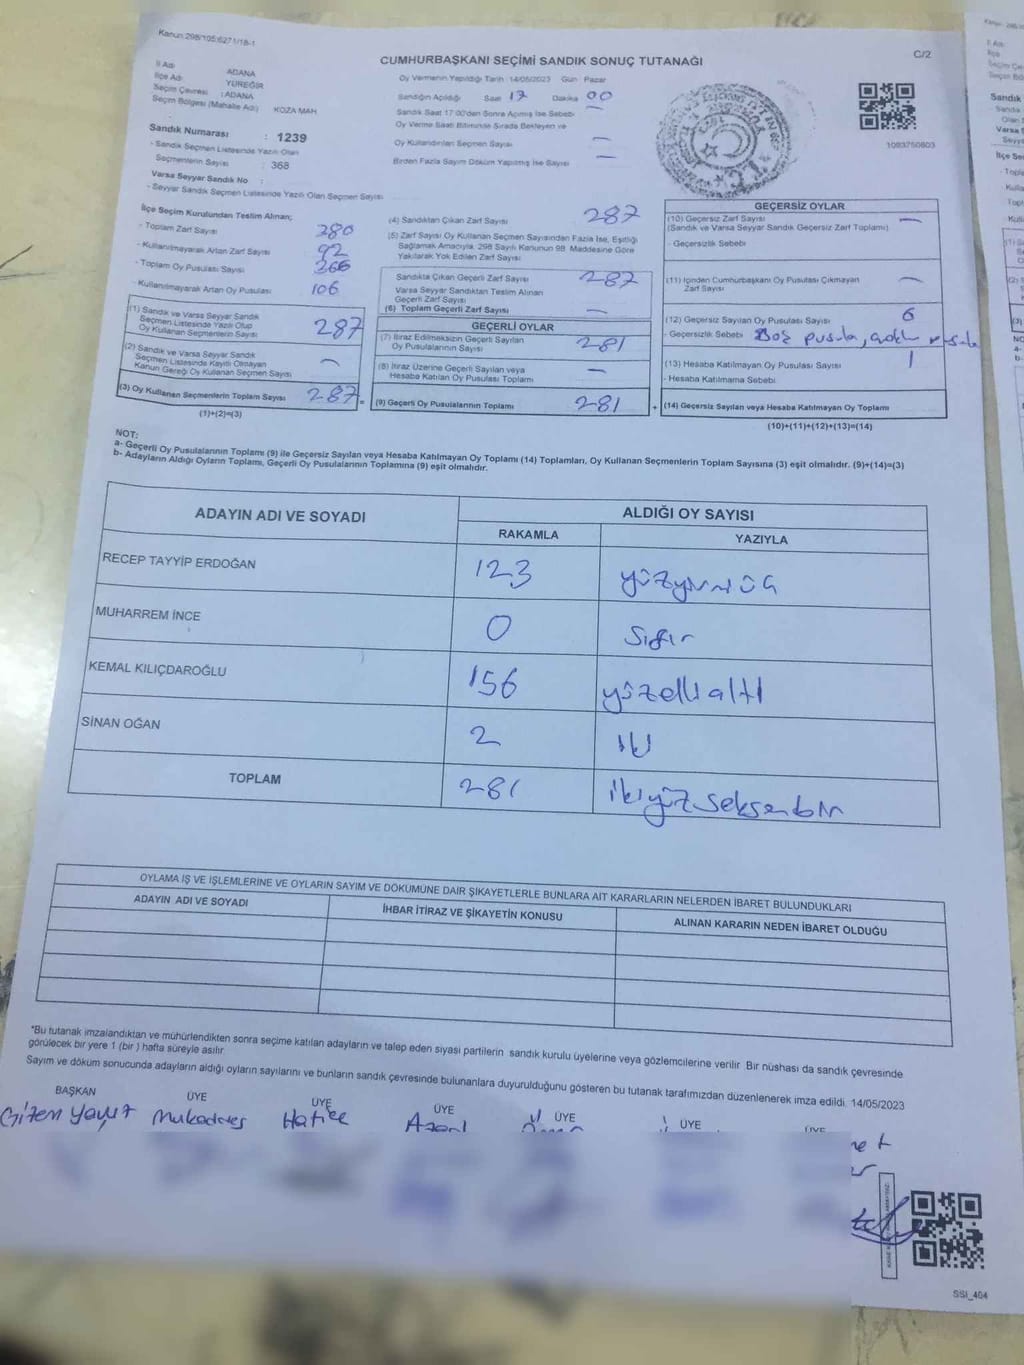 Kanun:298/105;6271/18-1
CUMHURBAŞKANI SEÇİMİ SANDIK SONUÇ TUTANAĞI
C/2
İl Adı ADANA
İlçe Adı YÜREĞİR
Seçim Çevresi : ADANA
Seçim Bölgesi (Mahalle Adı) KOZA MAH
Sandık Numarası : 1239
- Sandık Seçmen Listesinde Yazılı Olan
Seçmenlerin Sayısı : 368
Varsa Seyyar Sandık No :
- Seyyar Sandık Seçmen Listesinde Yazılı Olan Seçmen Sayısı
Oy Vermenin Yapıldığı Tarih :14/05/2023 Gün Pazar
Sandığın Açıldığı Saat 17 Dakika 00
Sandık Saat 17:00'den Sonra Açılmış İse Sebebi
Oy Verme Saati Bitiminde Sırada Bekleyen ve
Oy Kullandırılan Seçmen Sayısı —
Birden Fazla Sayım Döküm Yapılmış İse Sayısı —
1093750603
İlçe Seçim Kurulundan Teslim Alınan;
- Toplam Zarf Sayısı 380
- Kullanılmayarak Artan Zarf Sayısı 92
- Toplam Oy Pusulası Sayısı
- Kullanılmayarak Artan Oy Pusulası 106
(1) Sandık ve Varsa Seyyar Sandık
Seçmen Listesinde Yazılı Olup
Oy Kullanan Seçmenlerin Sayısı 287
(2) Sandık ve Varsa Seyyar Sandık
Seçmen Listesinde Kayıtlı Olmayan
Kanun Gereği Oy Kullanan Seçmen Sayısı —
(3) Oy Kullanan Seçmenlerin Toplam Sayısı 287
(1)+(2)=(3)
(4) Sandıktan Çıkan Zarf Sayısı 287
(5) Zarf Sayısı Oy Kullanan Seçmen Sayısından Fazla İse, Eşitliği
Sağlamak Amacıyla, 298 Sayılı Kanunun 98. Maddesine Göre
Yakılarak Yok Edilen Zarf Sayısı
Sandıkta Çıkan Geçerli Zarf Sayısı 287
Varsa Seyyar Sandıktan Teslim Alınan
Geçerli Zarf Sayısı
(6) Toplam Geçerli Zarf Sayısı —
GEÇERLİ OYLAR
(7) İtiraz Edilmeksizin Geçerli Sayılan
Oy Pusulalarının Sayısı 281
(8) İtiraz Üzerine Geçerli Sayılan veya
Hesaba Katılan Oy Pusulası Toplamı —
(9) Geçerli Oy Pusulalarının Toplamı 281
GEÇERSİZ OYLAR
(10) Geçersiz Zarf Sayısı —
(Sandık ve Varsa Seyyar Sandık Geçersiz Zarf Toplamı)
- Geçersizlik Sebebi
(11) İçinden Cumhurbaşkanı Oy Pusulası Çıkmayan —
Zarf Sayısı
(12) Geçersiz Sayılan Oy Pusulası Sayısı 6
- Geçersizlik Sebebi Boş pusula,
(13) Hesaba Katılmayan Oy Pusulası Sayısı
- Hesaba Katılmama Sebebi
(14) Geçersiz Sayılan veya Hesaba Katılmayan Oy Toplamı
(10)+(11)+(12)+(13)=(14)
NOT:
a- Geçerli Oy Pusulalarının Toplamı (9) ile Geçersiz Sayılan veya Hesaba Katılmayan Oy Toplamı (14) Toplamları, Oy Kullanan Seçmenlerin Toplam Sayısına (3) eşit olmalıdır. (9)+(14)=(3)
b- Adayların Aldığı Oyların Toplamı, Geçerli Oy Pusulalarının Toplamına (9) eşit olmalıdır.
ADAYIN ADI VE SOYADI
ALDIĞI OY SAYISI
RAKAMLA YAZIYLA
RECEP TAYYİP ERDOĞAN 123 yüzyirmiüç
MUHARREM İNCE 0 sıfır
KEMAL KILIÇDAROĞLU 156 yüzellialtı
SİNAN OĞAN 2 iki
TOPLAM 281 ikiyüzseksenbir
OYLAMA İŞ VE İŞLEMLERİNE VE OYLARIN SAYIM VE DÖKÜMÜNE DAİR ŞİKAYETLERLE BUNLARA AİT KARARLARIN NELERDEN İBARET BULUNDUKLARI
ADAYIN ADI VE SOYADI İHBAR İTİRAZ VE ŞİKAYETİN KONUSU ALINAN KARARIN NEDEN İBARET OLDUĞU
*Bu tutanak imzalandıktan ve mühürlendikten sonra seçime katılan adayların ve talep eden siyasi partilerin sandık kurulu üyelerine veya gözlemcilerine verilir. Bir nüshası da sandık çevresinde
görülecek bir yere 1 (bir ) hafta süreyle asılır.
Sayım ve döküm sonucunda adayların aldığı oyların sayılarını ve bunların sandık çevresinde bulunanlara duyurulduğunu gösteren bu tutanak tarafımızdan düzenlenerek imza edildi. 14/05/2023
BAŞKAN ÜYE ÜYE ÜYE ÜYE ÜYE ÜYE
Gizem Mukaddes Hatice
SSI_404